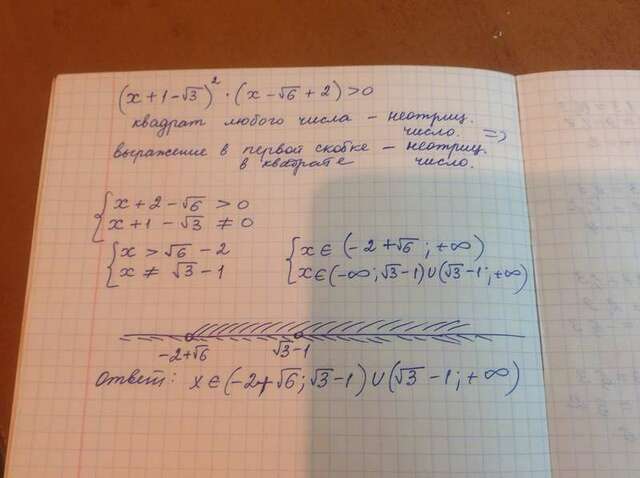 (x+1-√3)² · (x-√6+2) > 0
квадрат любого числа – неотриц. число. =>
выражение в первой скобке в квадрате – неотриц. число.
{ x+2-√6 > 0
x+1-√3 ≠ 0
{ x > √6-2
x ≠ √3-1
{ x∈(-2+√6;+∞)
x∈(-∞;√3-1)∪(√3-1;+∞)
-2+√6 √3-1
Ответ: x∈(-2+√6;√3-1)∪(√3-1;+∞)